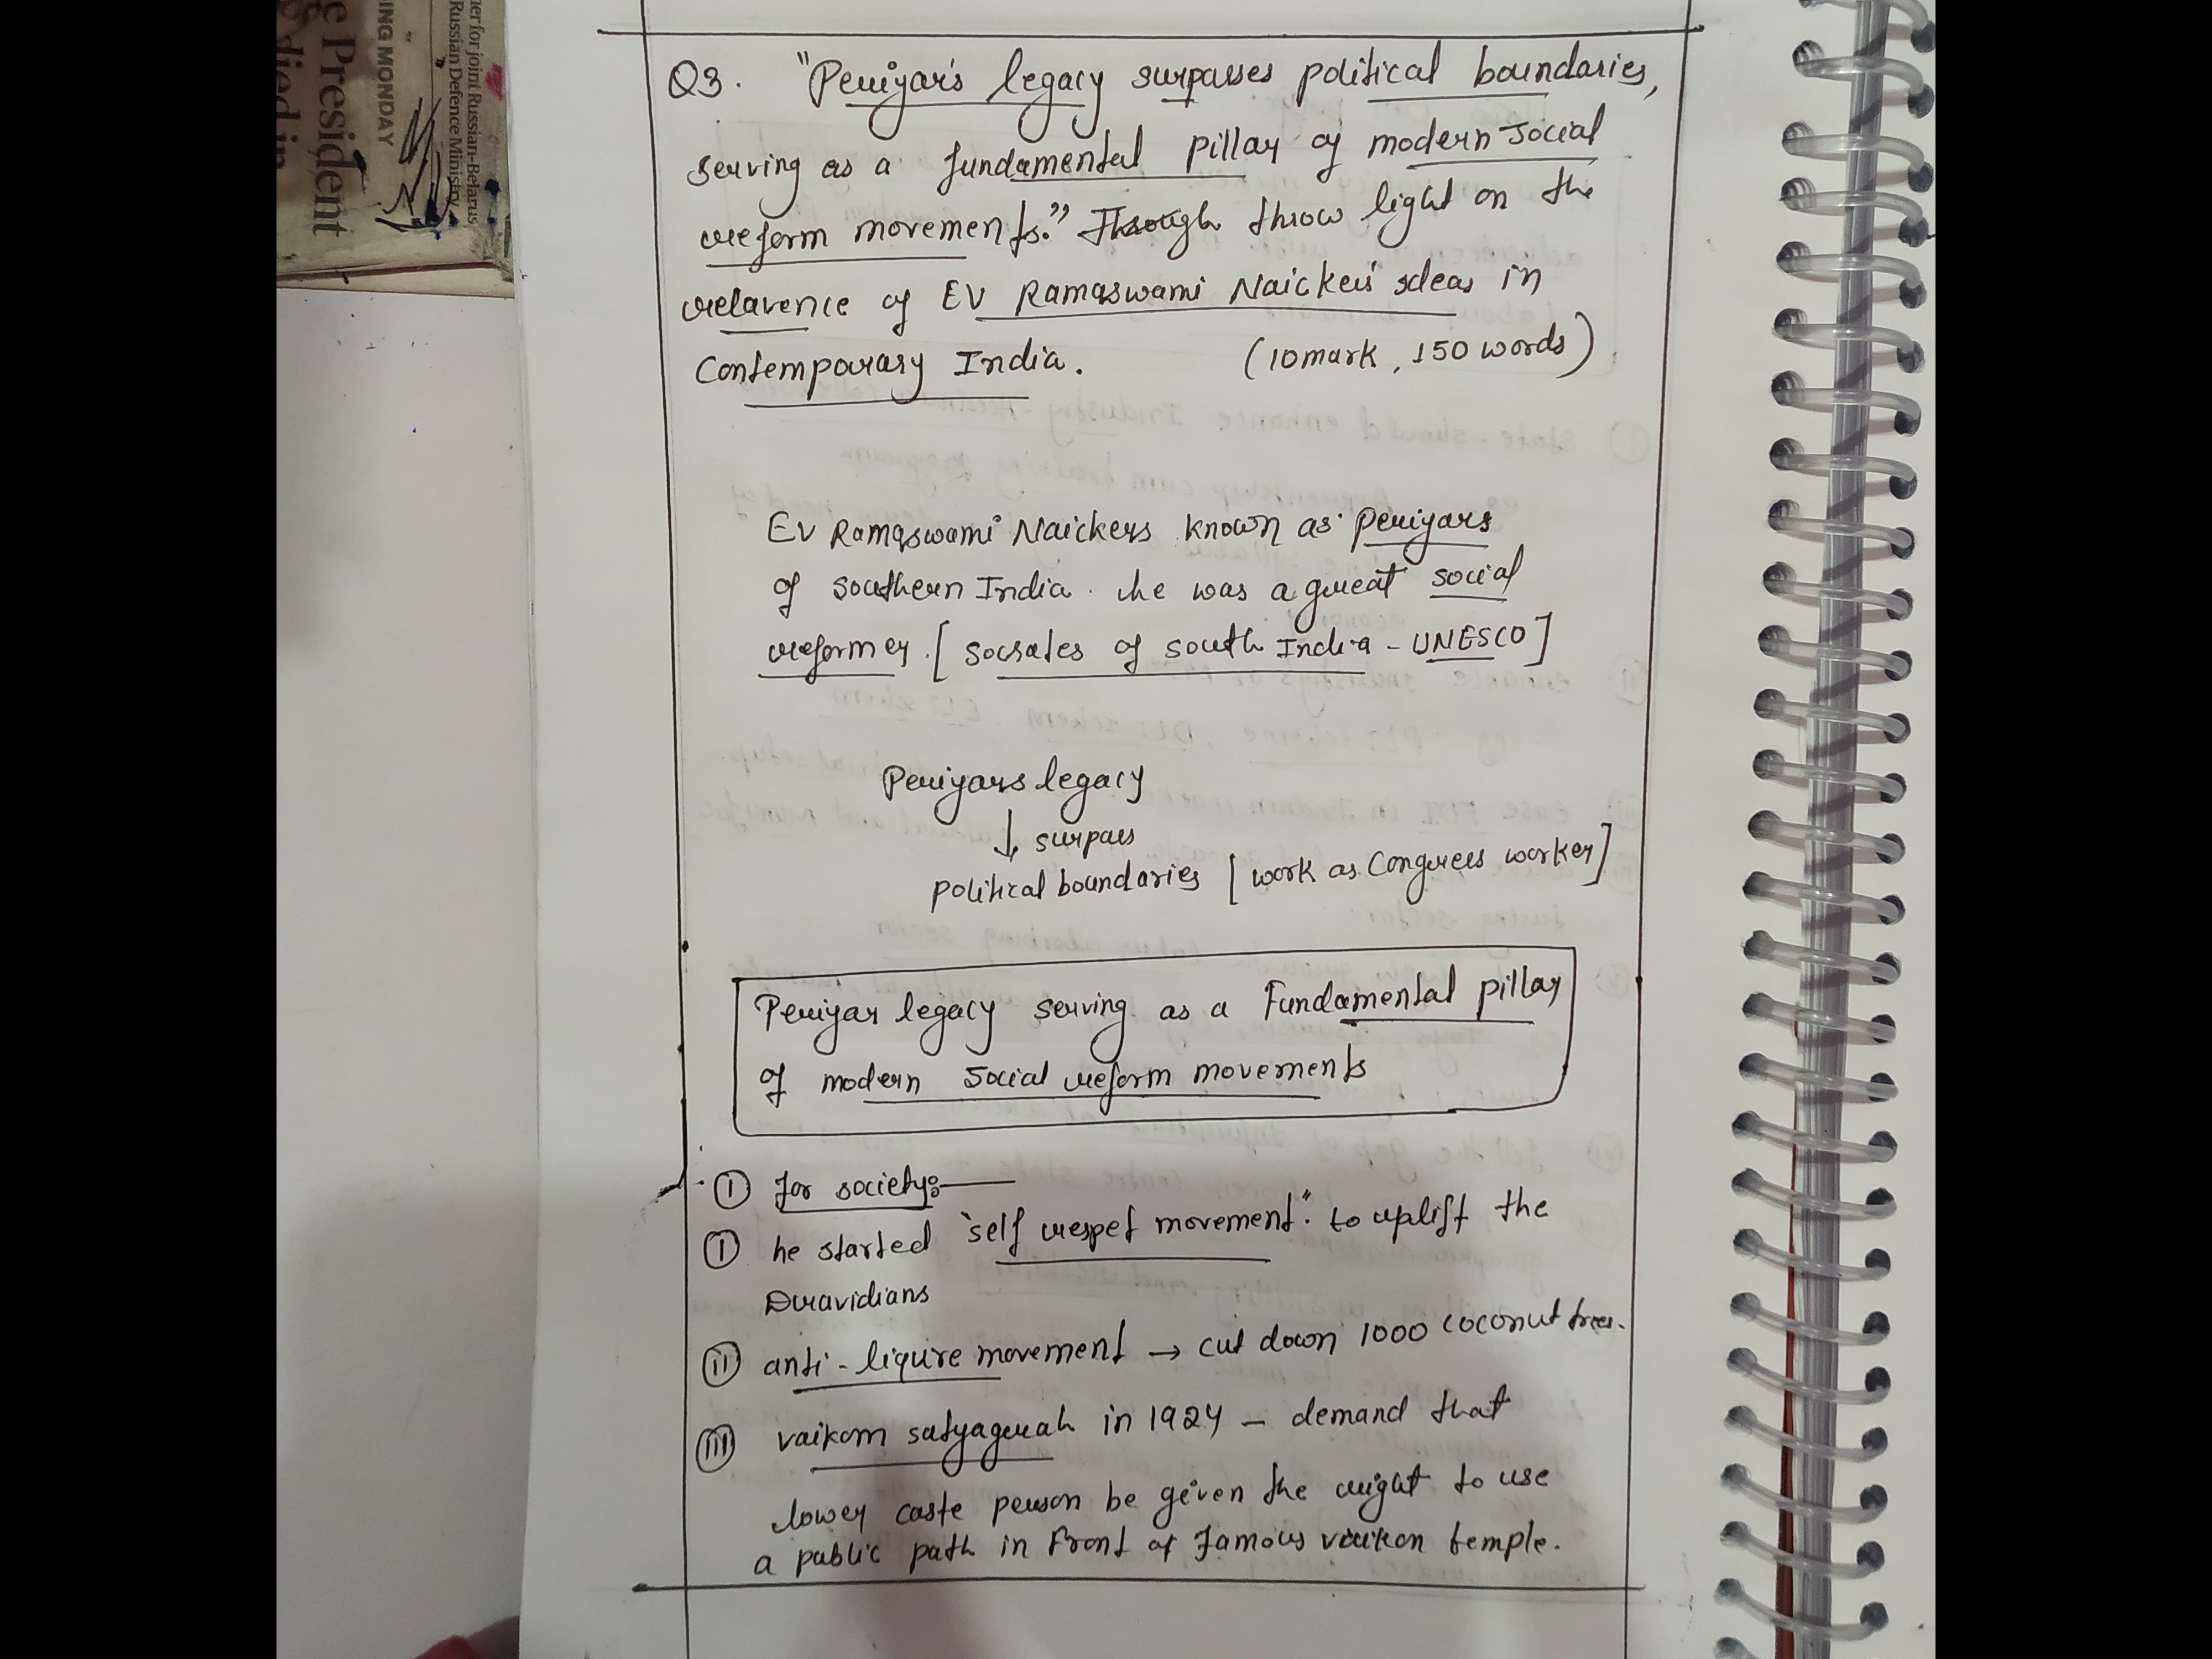 e President
died in
ING MONDAY
ner for joint Russian-Belarus
Russian Defence Ministry
Q3. "Periyar's legacy surpasses political boundaries,
serving as a fundamental pillar of modern social
reform movements." Through throw light on the
relavence of EV Ramaswami Naicker's ideas in
Contemporary India. (10 mark, 150 words)
EV Ramaswami Naickers known as Periyars
of southern India. he was a great social
reformer. [socrates of south India - UNESCO]
Periyars legacy
↓ surpass
political boundaries [work as Congress worker]
Periyar legacy serving as a Fundamental pillar
of modern social reform movements
① for society:—
① he started "self respet movement". to uplift the
Dravidians
② anti-liquire movement → cut down 1000 coconut trees.
③ vaikom satyagrah in 1924 - demand that
lower caste person be given the right to use
a public path in front of famous vaikon temple.